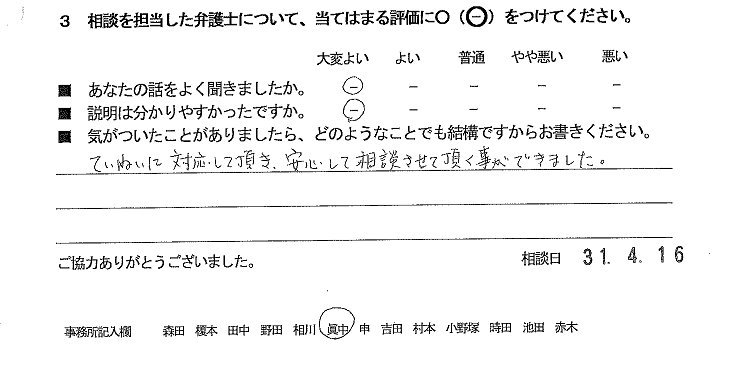 3 相談を担当した弁護士について、当てはまる評価に○（⊖）をつけてください。
大変よい よい 普通 やや悪い 悪い
■ あなたの話をよく聞きましたか。 − − − − −
■ 説明は分かりやすかったですか。 − − − − −
■ 気がついたことがありましたら、どのようなことでも結構ですからお書きください。
ていねいに対応して頂き、安心して相談させて頂く事ができました。
ご協力ありがとうございました。 相談日 31. 4. 16
事務所記入欄 森田 榎本 田中 野田 相川 眞中 申 吉田 村本 小野塚 時田 池田 赤木